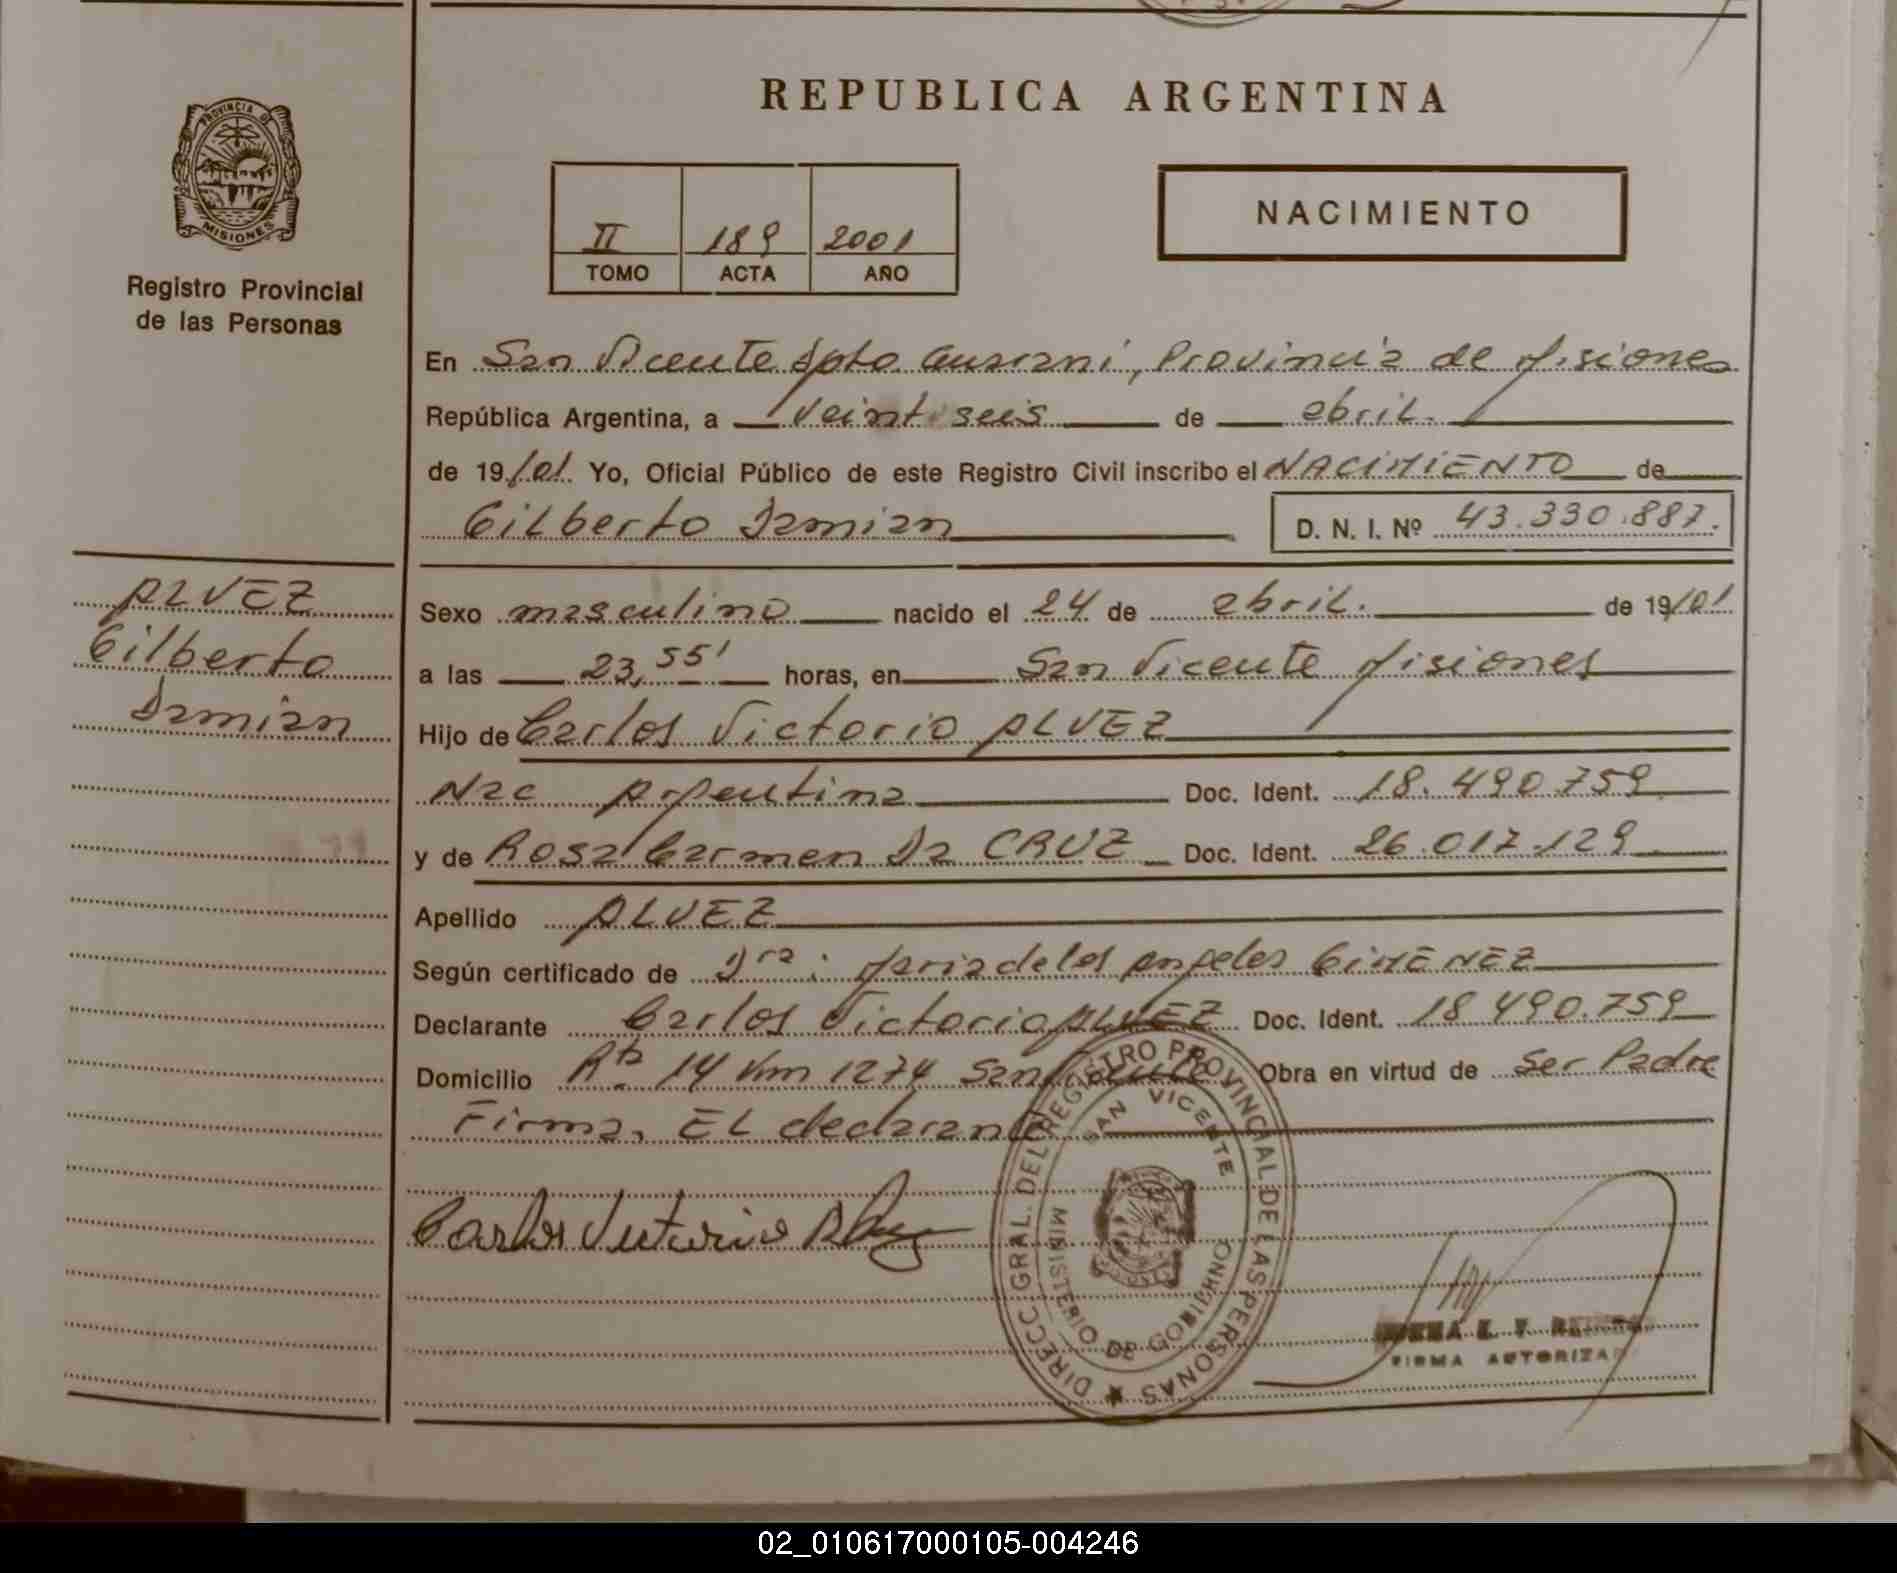 REPUBLICA ARGENTINA
PROVINCIA DE
MISIONES
Registro Provincial
de las Personas
II 189 2001
TOMO ACTA AÑO
NACIMIENTO
En San Vicente Dpto Guarani, Provincia de Misiones
República Argentina, a veintiseis de abril.
de 19/01. Yo, Oficial Público de este Registro Civil inscribo el NACIMIENTO de
Gilberto Damian D. N. I. Nº 43.330.887.
ALVEZ
Gilberto
Damian
Sexo masculino nacido el 24 de abril. de 19/01
a las 23,55' horas, en San Vicente Misiones
Hijo de Carlos Victorio ALVEZ
Nac Argentina Doc. Ident. 18.490.759
y de Rosa Carmen Da CRUZ Doc. Ident. 26.017.129
Apellido ALVEZ
Según certificado de Dra: Maria de los Angeles GIMENEZ
Declarante Carlos Victorio ALVEZ Doc. Ident. 18.490.759
Domicilio Rta 14 Km 1274 San Vicente Obra en virtud de Ser Padre
Firma, EL declarante
Carlos Victorio Alvez
DIRECC. GRAL. DEL REGISTRO PROVINCIAL DE LAS PERSONAS
SAN VICENTE
MINISTERIO DE GOBIERNO
FIRMA AUTORIZADA
02_010617000105-004246